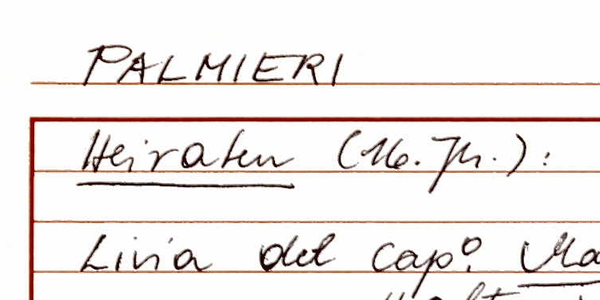 PALMIERI
Heiraten (16. Jh.):
Livia del capº.